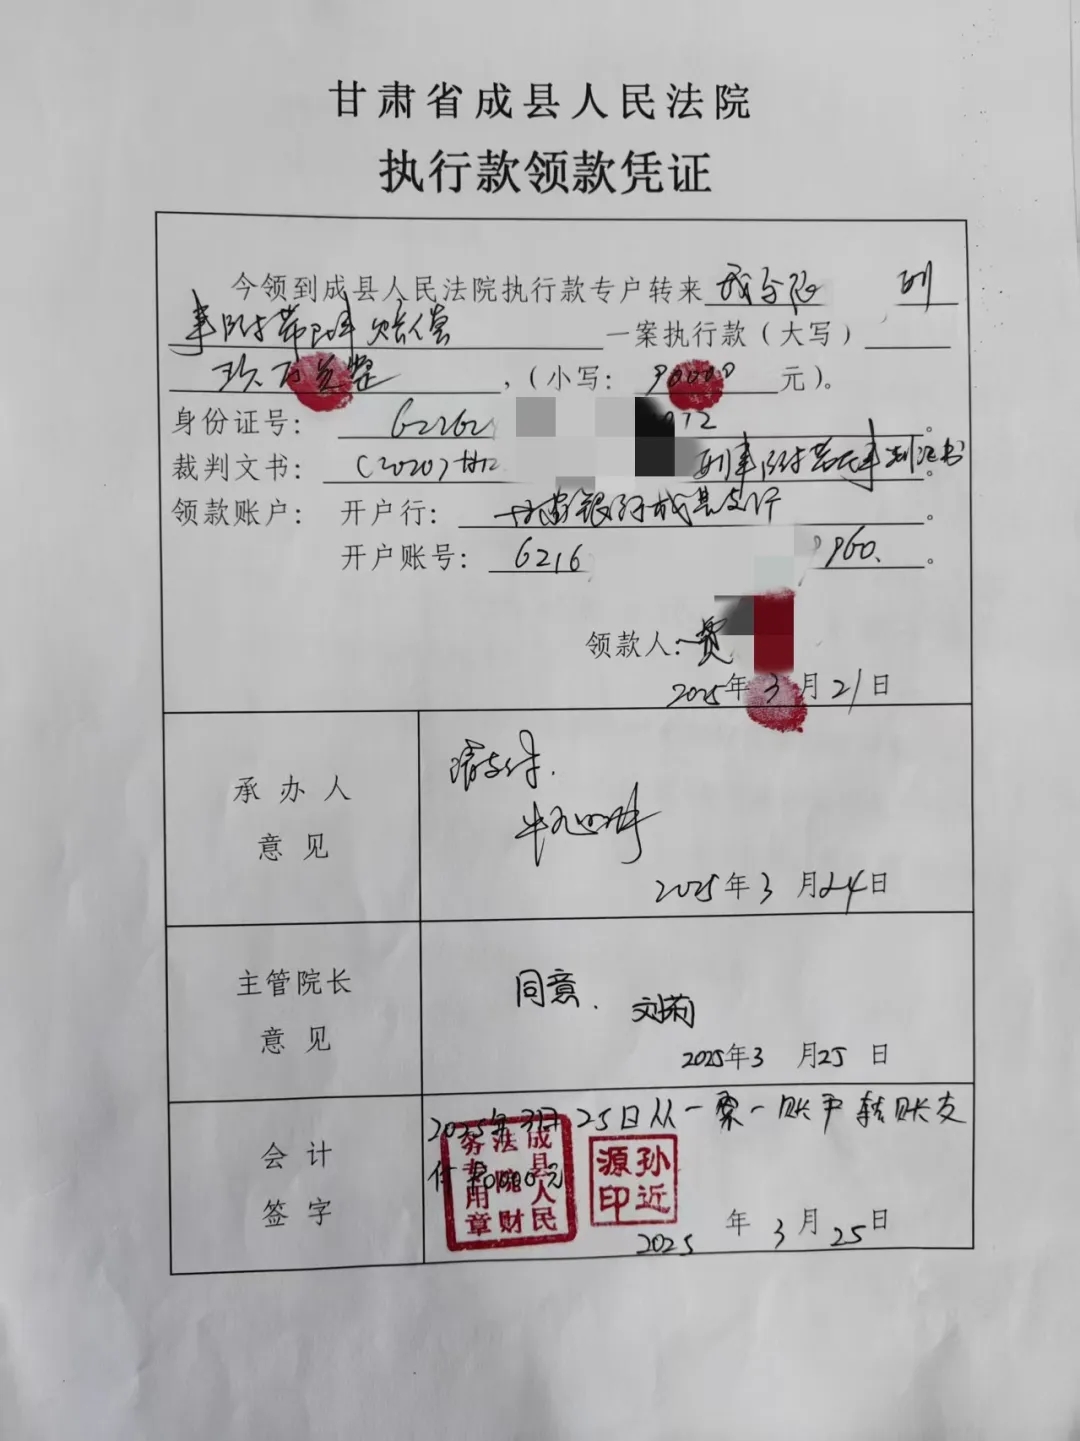 甘肃省成县人民法院
执行款领款凭证
今领到成县人民法院执行款专户转来 刑
事附带民事赔偿 一案执行款（大写）
玖万元整，（小写：90000元）。
身份证号：62262 972。
裁判文书：（2020）甘12 刑事附带民事判决书。
领款账户：开户行：甘肃银行成县支行。
开户账号：6216 960.。
领款人：贾
2025年3月21日
承办人
意见
请支付.
2025年3月24日
主管院长
意见
同意.
刘莉
2025年3月25日
会计
签字
2025年3月25日从一案一账户转账支
付90000元
成县人民法院财务专用章
孙近源印
2025年3月25日